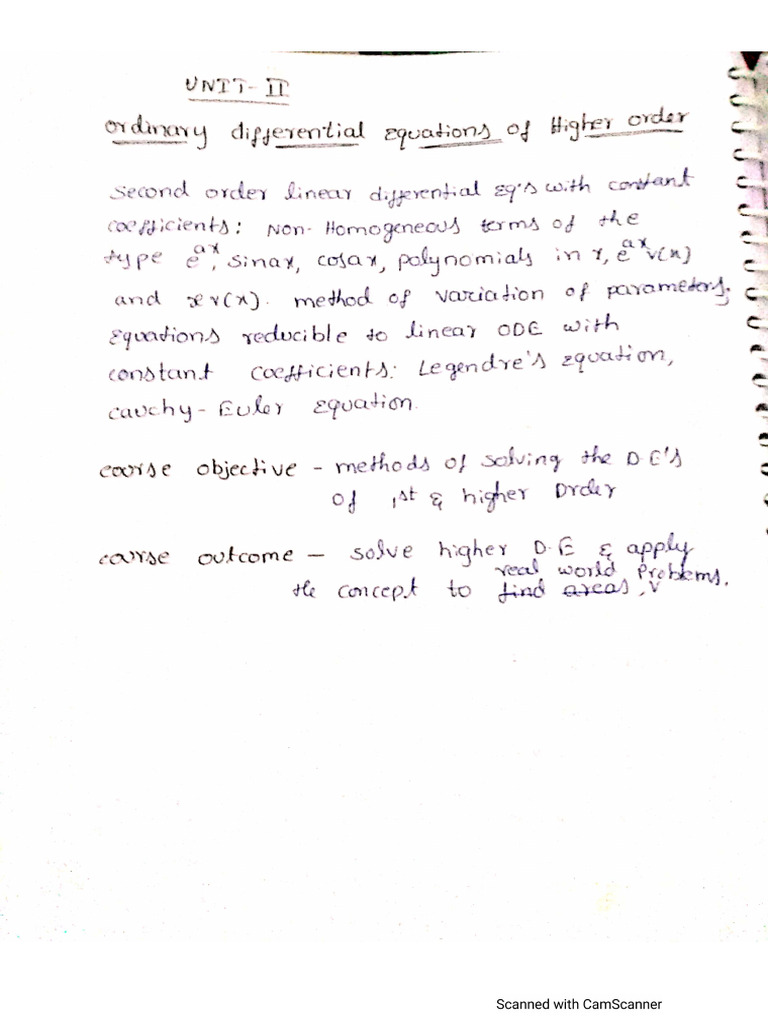 UNIT-II
Ordinary differential Equations of Higher order
Second order linear differential Eq's with constant
coefficients: Non-Homogeneous terms of the
type e^ax, sinax, cosax, polynomials in x, e^ax v(x)
and x v(x). method of variation of parameters;
Equations reducible to linear ODE with
constant coefficients: Legendre's Equation,
cauchy-Euler Equation.
course objective - methods of solving the D.E's
of 1st & higher Order
course outcome - solve higher D.E & apply
real world Problems.
the concept to find areas, v
Scanned with CamScanner